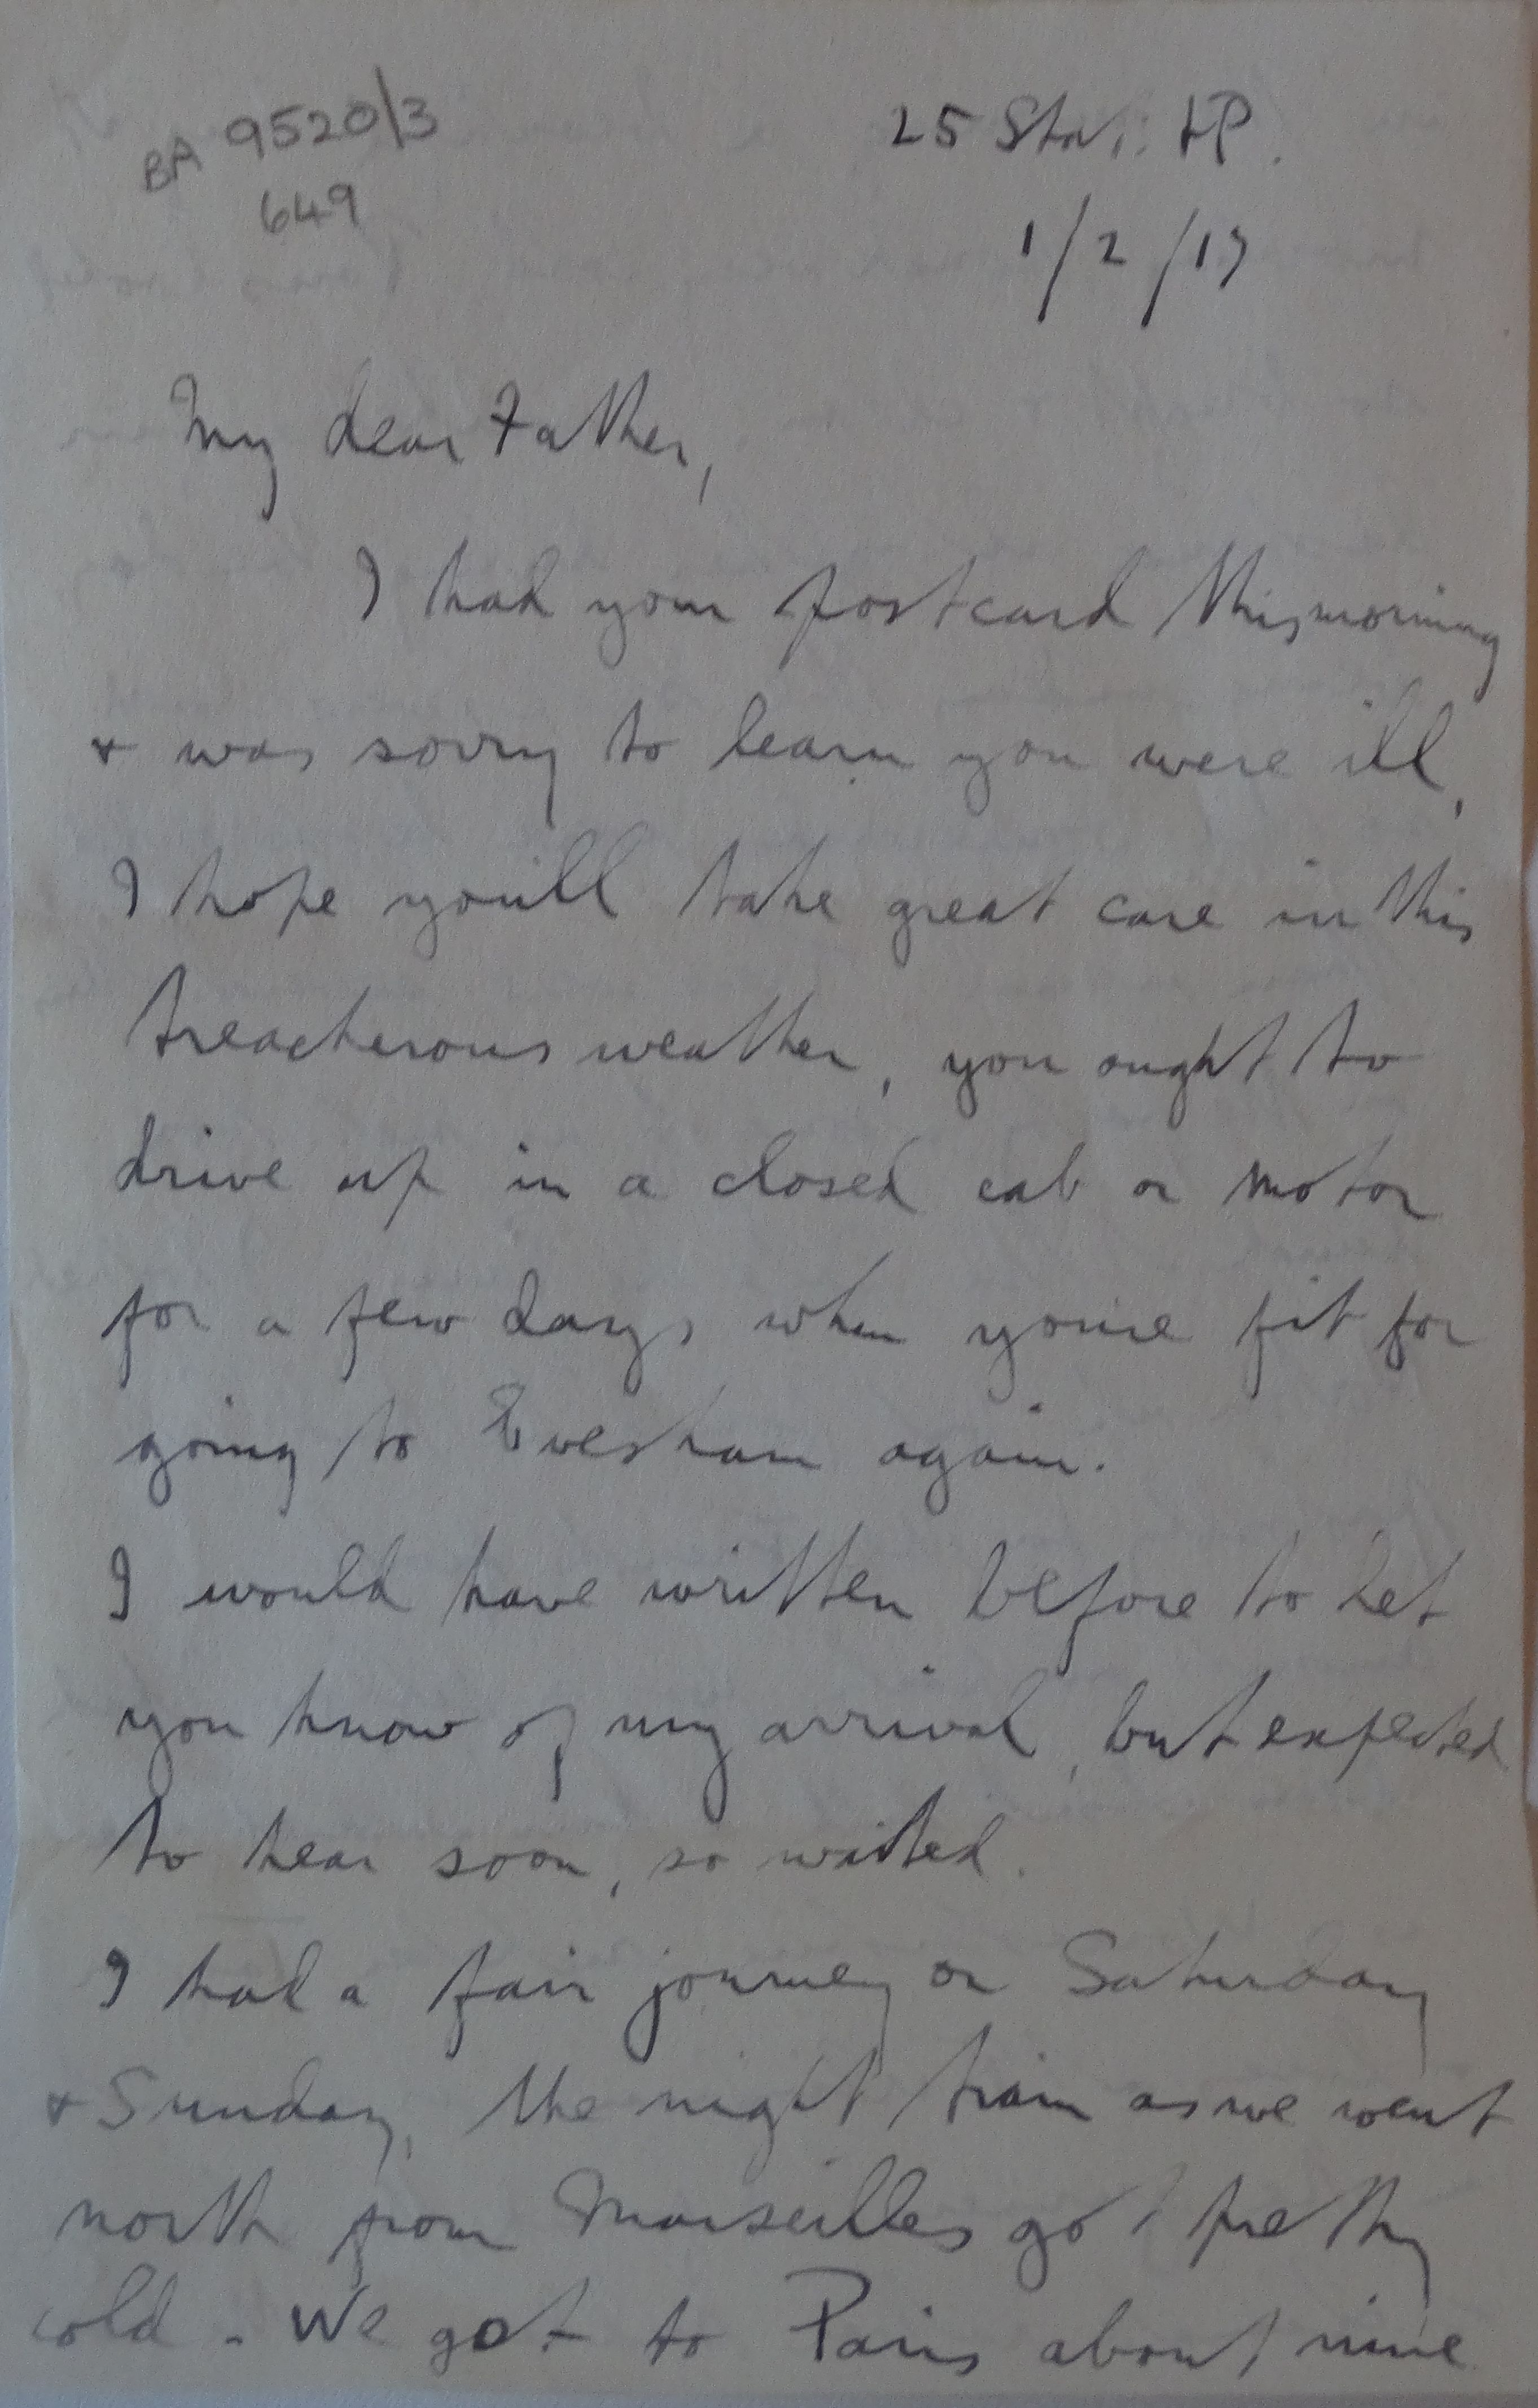 BA 9520/3
649
25 Sta.
1/2/19
My dear Father,
I had your postcard this morning
& was sorry to learn you were ill,
I hope you'll take great care in this
treacherous weather, you ought to
drive up in a closed cab or motor
for a few days when you're fit for
going to Evesham again.
I would have written before to let
you know of my arrival, but expected
to hear soon, so waited.
I had a fair journey on Saturday
& Sunday, the night train as we went
north from Marseilles got pretty
cold. We got to Paris about nine